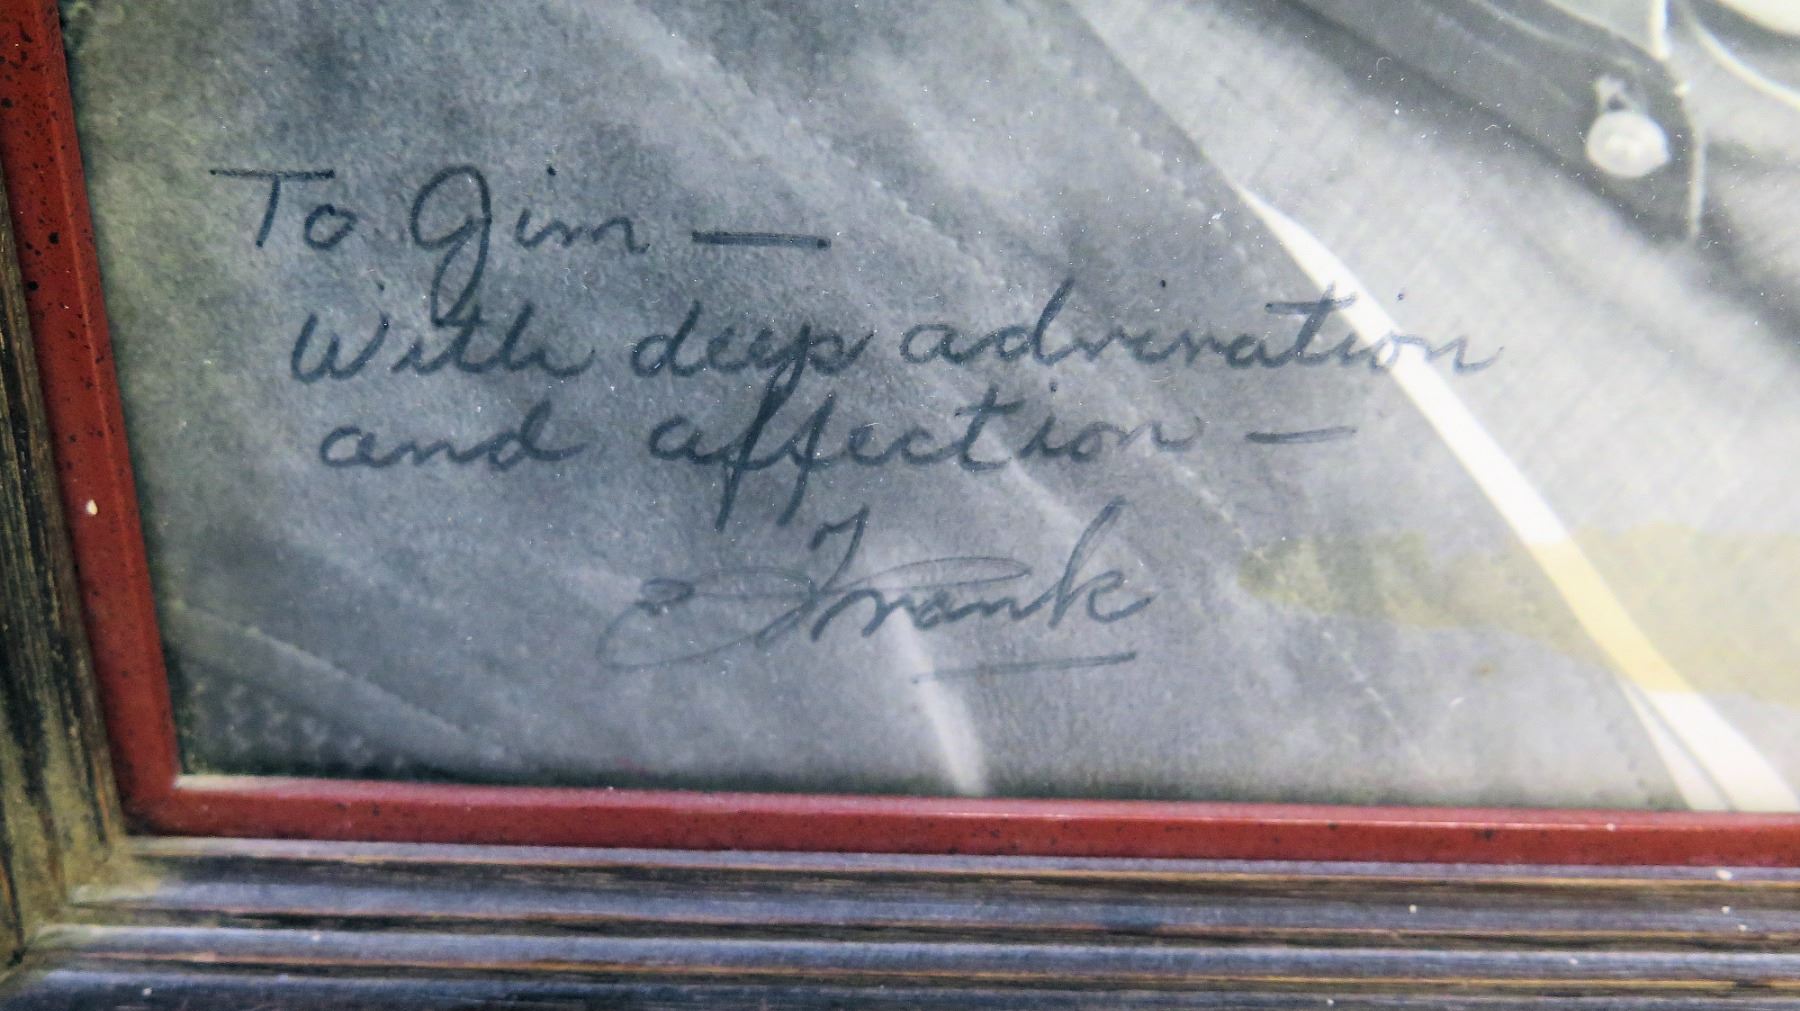 To Jim —
With deep admiration
and affection —
Frank